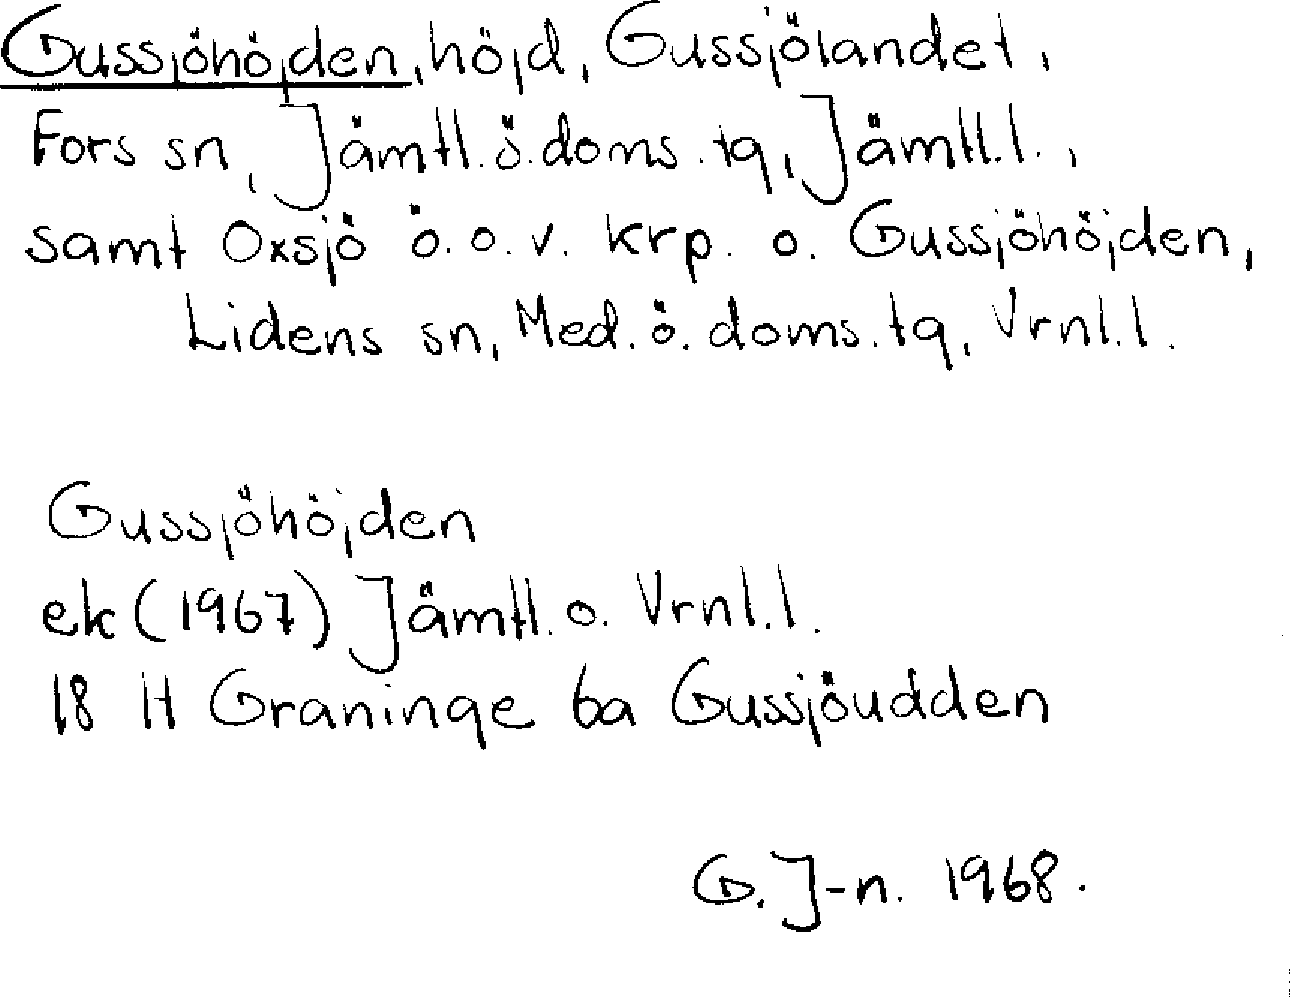 Gussjöhöjden, höjd, Gussjölandet,
Fors sn, Jämtl. ö. doms. tg, Jämtl. l.,
samt Oxsjö ö. o. v. krp. o. Gussjöhöjden,
Lidens sn, Med. ö. doms. tg, Vrnl. l.
Gussjöhöjden
ek (1967) Jämtl. o. Vrnl. l.
18 H Graninge 6a Gussjöudden
G. J-n. 1968.